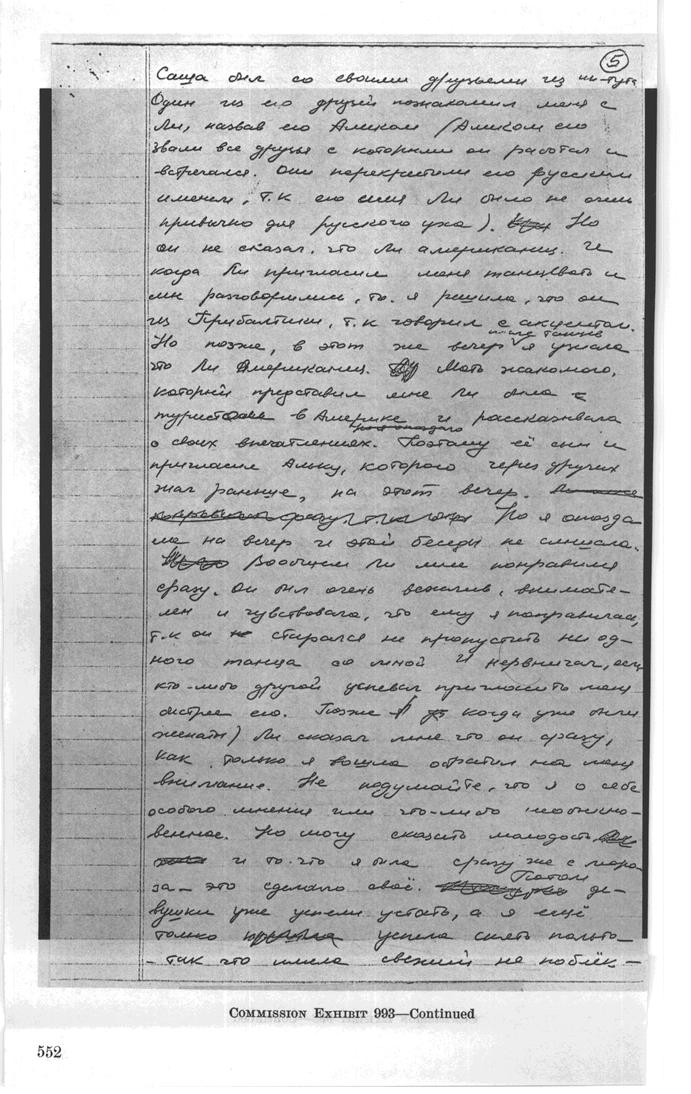 5
Саша был со своими друзьями из ин-тута
Один из его друзей познакомил меня с
Ли, назвав его Аликом (Аликом его
звали все друзья с которыми он работал и
встречался. Они перекрестили его русским
именем, т.к его имя Ли было не очень
привычно для русского уха). Но
он не сказал, что Ли американец. И
когда Ли пригласил меня танцевать и
мы разговорились, то я решила, что он
из Прибалтики, т.к говорил с акцентом.
Но позже, в этот же вечер после танцев я узнала
что Ли Американец. Мать знакомого,
который представил мне Ли была
туристом в Америке и рассказывала
о своих впечатлениях. Поэтому её сын и
пригласил Альку, которого через других
знал раньше, на этот вечер.
Но я опозда
ла на вечер и этой беседы не слышала.
Вообщем Ли мне понравился
сразу. Он был очень вежлив, внимате-
лен и чувствовала, что ему я понравилась,
т.к он старался не пропустить ни од-
ного танца со мной и нервничал, если
кто-либо другой успевал пригласить меня
быстрее его. Позже (когда уже были
женаты) Ли сказал мне что он сразу,
как только я вошла обратил на меня
внимание. Не подумайте, что я о себе
особого мнения или что-либо необыкно-
венное. Но могу сказать молодость
и то что я была сразу же с моро
за - это сделало своё. Потом де-
вушки уже успели устать, а я ещё
только успела снять пальто -
- так что имела свежий не поблёк-
COMMISSION EXHIBIT 993—Continued
552